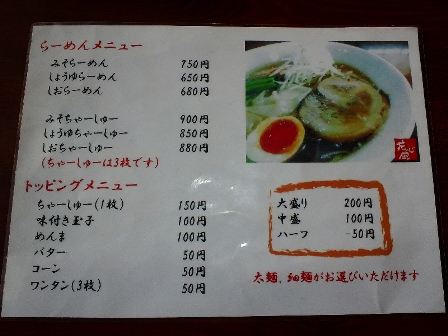 らーめんメニュー
みそらーめん 750円
しょうゆらーめん 650円
しおらーめん 680円
みそちゃーしゅー 900円
しょうゆちゃーしゅー 850円
しおちゃーしゅー 880円
(ちゃーしゅーは3枚です)
トッピングメニュー
ちゃーしゅー(1枚) 150円
味付き玉子 100円
めんま 100円
バター 50円
コーン 50円
ワンタン(3枚) 50円
大盛り 200円
中盛 100円
ハーフ -50円
太麺、細麺がお選びいただけます